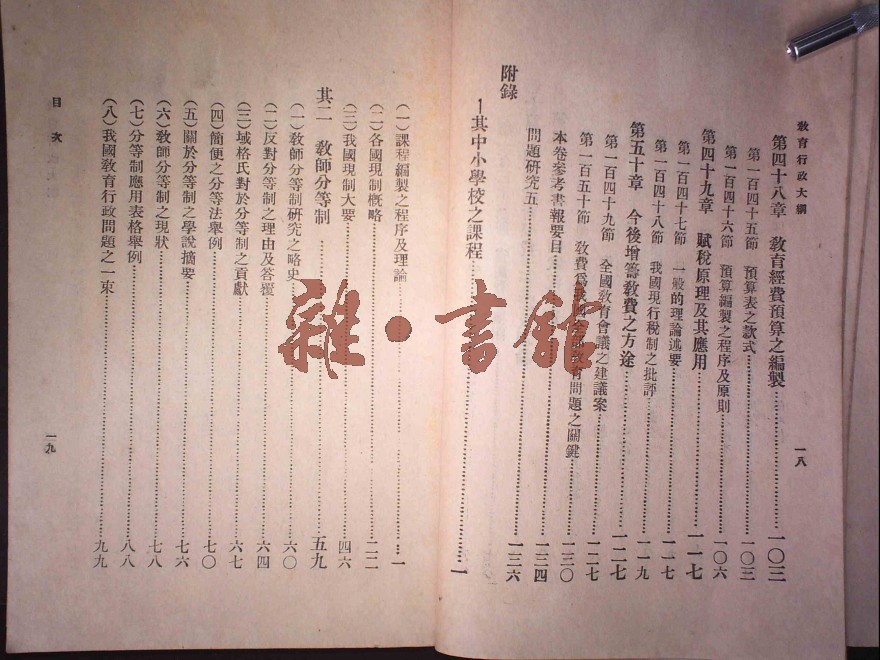 教育行政大綱
一八
第四十八章 教育經費預算之編製……一〇三
第一百四十五節 預算表之款式……一〇三
第一百四十六節 預算編製之程序及原則……一〇六
第四十九章 賦稅原理及其應用……一一七
第一百四十七節 一般的理論述要……一一七
第一百四十八節 我國現行稅制之批評……一一九
第五十章 今後增籌教費之方途……一二七
第一百四十九節 全國教育會議之建議案……一二七
第一百五十節 教費爲我國教育問題之關鍵……一三〇
本卷參考書報要目……一三四
問題研究五……一三六
附錄
一其中小學校之課程……一
(一)課程編製之程序及理論……一
(二)各國現制概略……二二
(三)我國現制大要……四六
其二 教師分等制……五九
(一)教師分等制研究之略史……六〇
(二)反對分等制之理由及答覆……六四
(三)域格氏對於分等制之貢獻……六七
(四)簡便之分等法舉例……七〇
(五)關於分等制之學說摘要……七六
(六)教師分等制之現狀……七八
(七)分等制應用表格舉例……八八
(八)我國教育行政問題之一束……九九
目次
一九
雜·書館